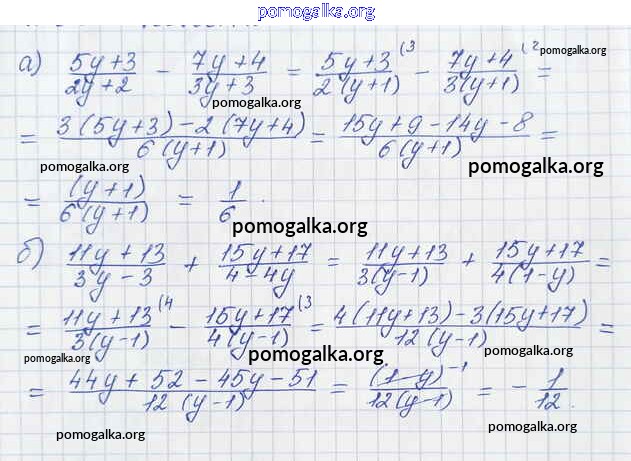 pomogalka.org
а) (5y+3)/(2y+2) − (7y+4)/(3y+3) = (5y+3)/(2(y+1)) (3 − (7y+4)/(3(y+1)) (2 =
pomogalka.org
pomogalka.org
= (3(5y+3)−2(7y+4))/(6(y+1)) = (15y+9−14y−8)/(6(y+1)) =
pomogalka.org
pomogalka.org
= (y+1)/(6(y+1)) = 1/6.
pomogalka.org
б) (11y+13)/(3y−3) + (15y+17)/(4−4y) = (11y+13)/(3(y−1)) + (15y+17)/(4(1−y)) =
= (11y+13)/(3(y−1)) (4 − (15y+17)/(4(y−1)) (3 = (4(11y+13)−3(15y+17))/(12(y−1)) =
pomogalka.org
pomogalka.org
pomogalka.org
= (44y+52−45y−51)/(12(y−1)) = (1−y)⁻¹/(12(y−1)) = −1/12.
pomogalka.org
pomogalka.org